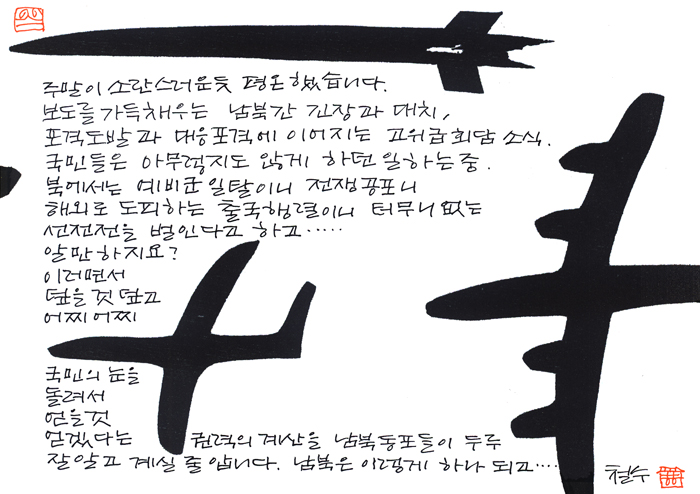 주말이 소란스러운듯 평온했습니다.
보도를 가득채우는 남북간 긴장과 대치,
포격도발과 대응포격에 이어지는 고위급회담 소식.
국민들은 아무렇지도 않게 하던일하는 중.
북에서는 예비군일탈이니 전쟁공포니
해외로 도피하는 출국행렬이니 터무니없는
선전전을 벌인다고 하고·····
알만하지요?
이러면서
덮을 것 덮고
어찌어찌
국민의 눈을
돌려서
얻을것
얻겠다는 권력의 계산을 남북동포들이 두루
잘알고 계실 줄 압니다. 남북은 이렇게 하나 되고····
철수